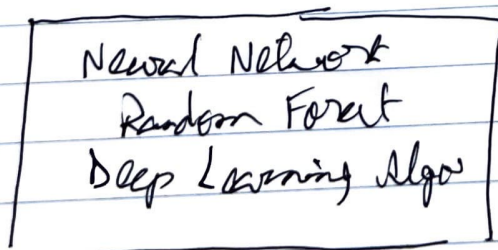 Neural Network
Random Forest
Deep Learning Algo